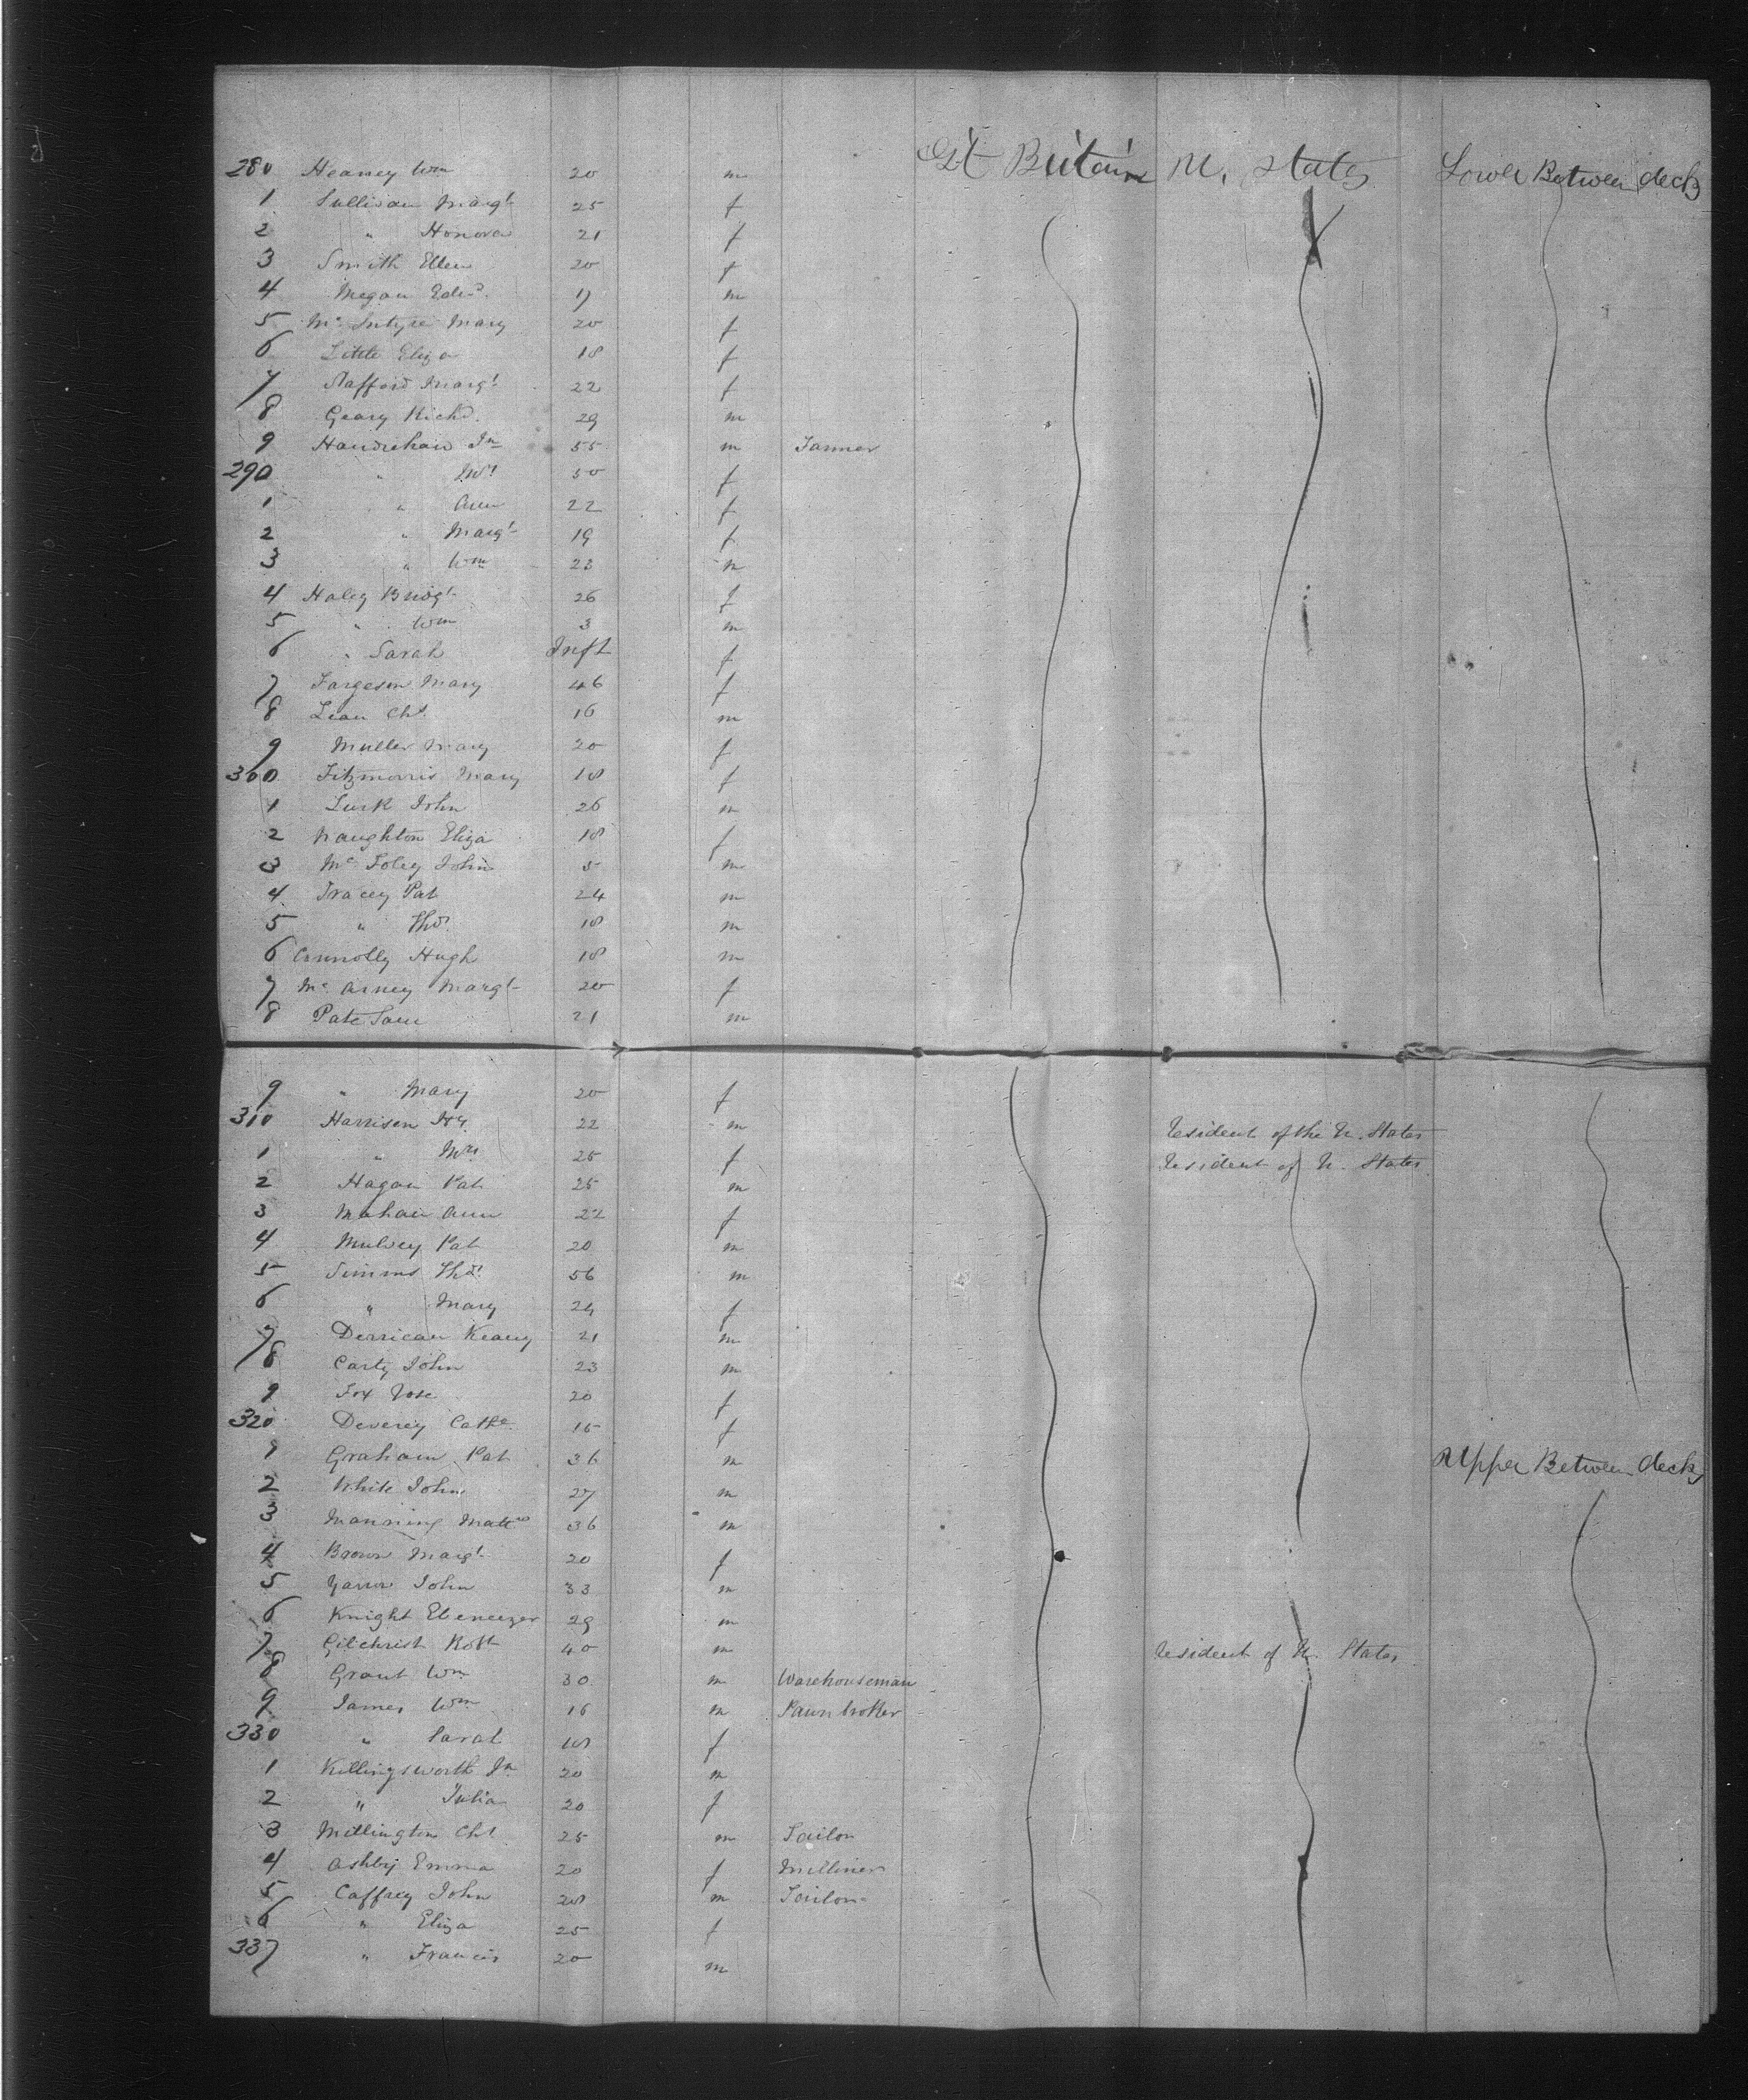 280 Heaney Wm 20 m Gt Britain U. States Lower Between decks
1 Sullivan Margt 25 f
2 " Honora 21 f
3 Smith Ellen 20 f
4 Megan Edwd. 17 m
5 Mc Intyre Mary 20 f
6 Little Eliza 18 f
7 Stafford Margt 22 f
8 Geary Richd. 29 m
9 Handrehan Jn 55 m Farmer
290 " Mrs 50 f
1 " Ann 22 f
2 " Margt 19 f
3 " Wm 23 m
4 Haley Bridgt 26 f
5 " Wm 3 m
6 " Sarah Inft f
7 Fargeson Mary 46 f
8 Lean Chs. 16 m
9 Muller Mary 20 f
300 Fitzmorris Mary 18 f
1 Lusk John 26 m
2 Naughton Eliza 18 f
3 Mc Foley John 5 m
4 Tracey Pat 24 m
5 " Thos. 18 m
6 Connolly Hugh 18 m
7 Mc Arney Margt 20 f
8 Pate Sam 21 m
9 " Mary 20 f
310 Harrison Hy. 22 m Resident of the U. States
1 " Mrs 25 f Resident of U. States
2 Hagan Pat 25 m
3 Mahan Ann 22 f
4 Mulvey Pat 20 m
5 Simms Thos. 56 m
6 " Mary 24 f
7 Derrican Keany 21 m
8 Carty John 23 m
9 Fox Rose 20 f
320 Deverey Cathe 15 f
1 Graham Pat 36 m Upper Between decks
2 White John 27 m
3 Manning Mattw 36 m
4 Brown Margt 20 f
5 Yarrow John 33 m
6 Knight Ebeneezer 29 m
7 Gilchrist Robt 40 m Resident of U. States
8 Grant Wm 30 m Warehouseman
9 James Wm 16 m Pawnbroker
330 " Sarah 18 f
1 Killingsworth Jn 20 m
2 " Julia 20 f
3 Millington Chs 25 m Tailor
4 Ashby Emma 20 f Milliner
5 Caffrey John 28 m Tailor
6 " Eliza 25 f
337 " Francis 20 m